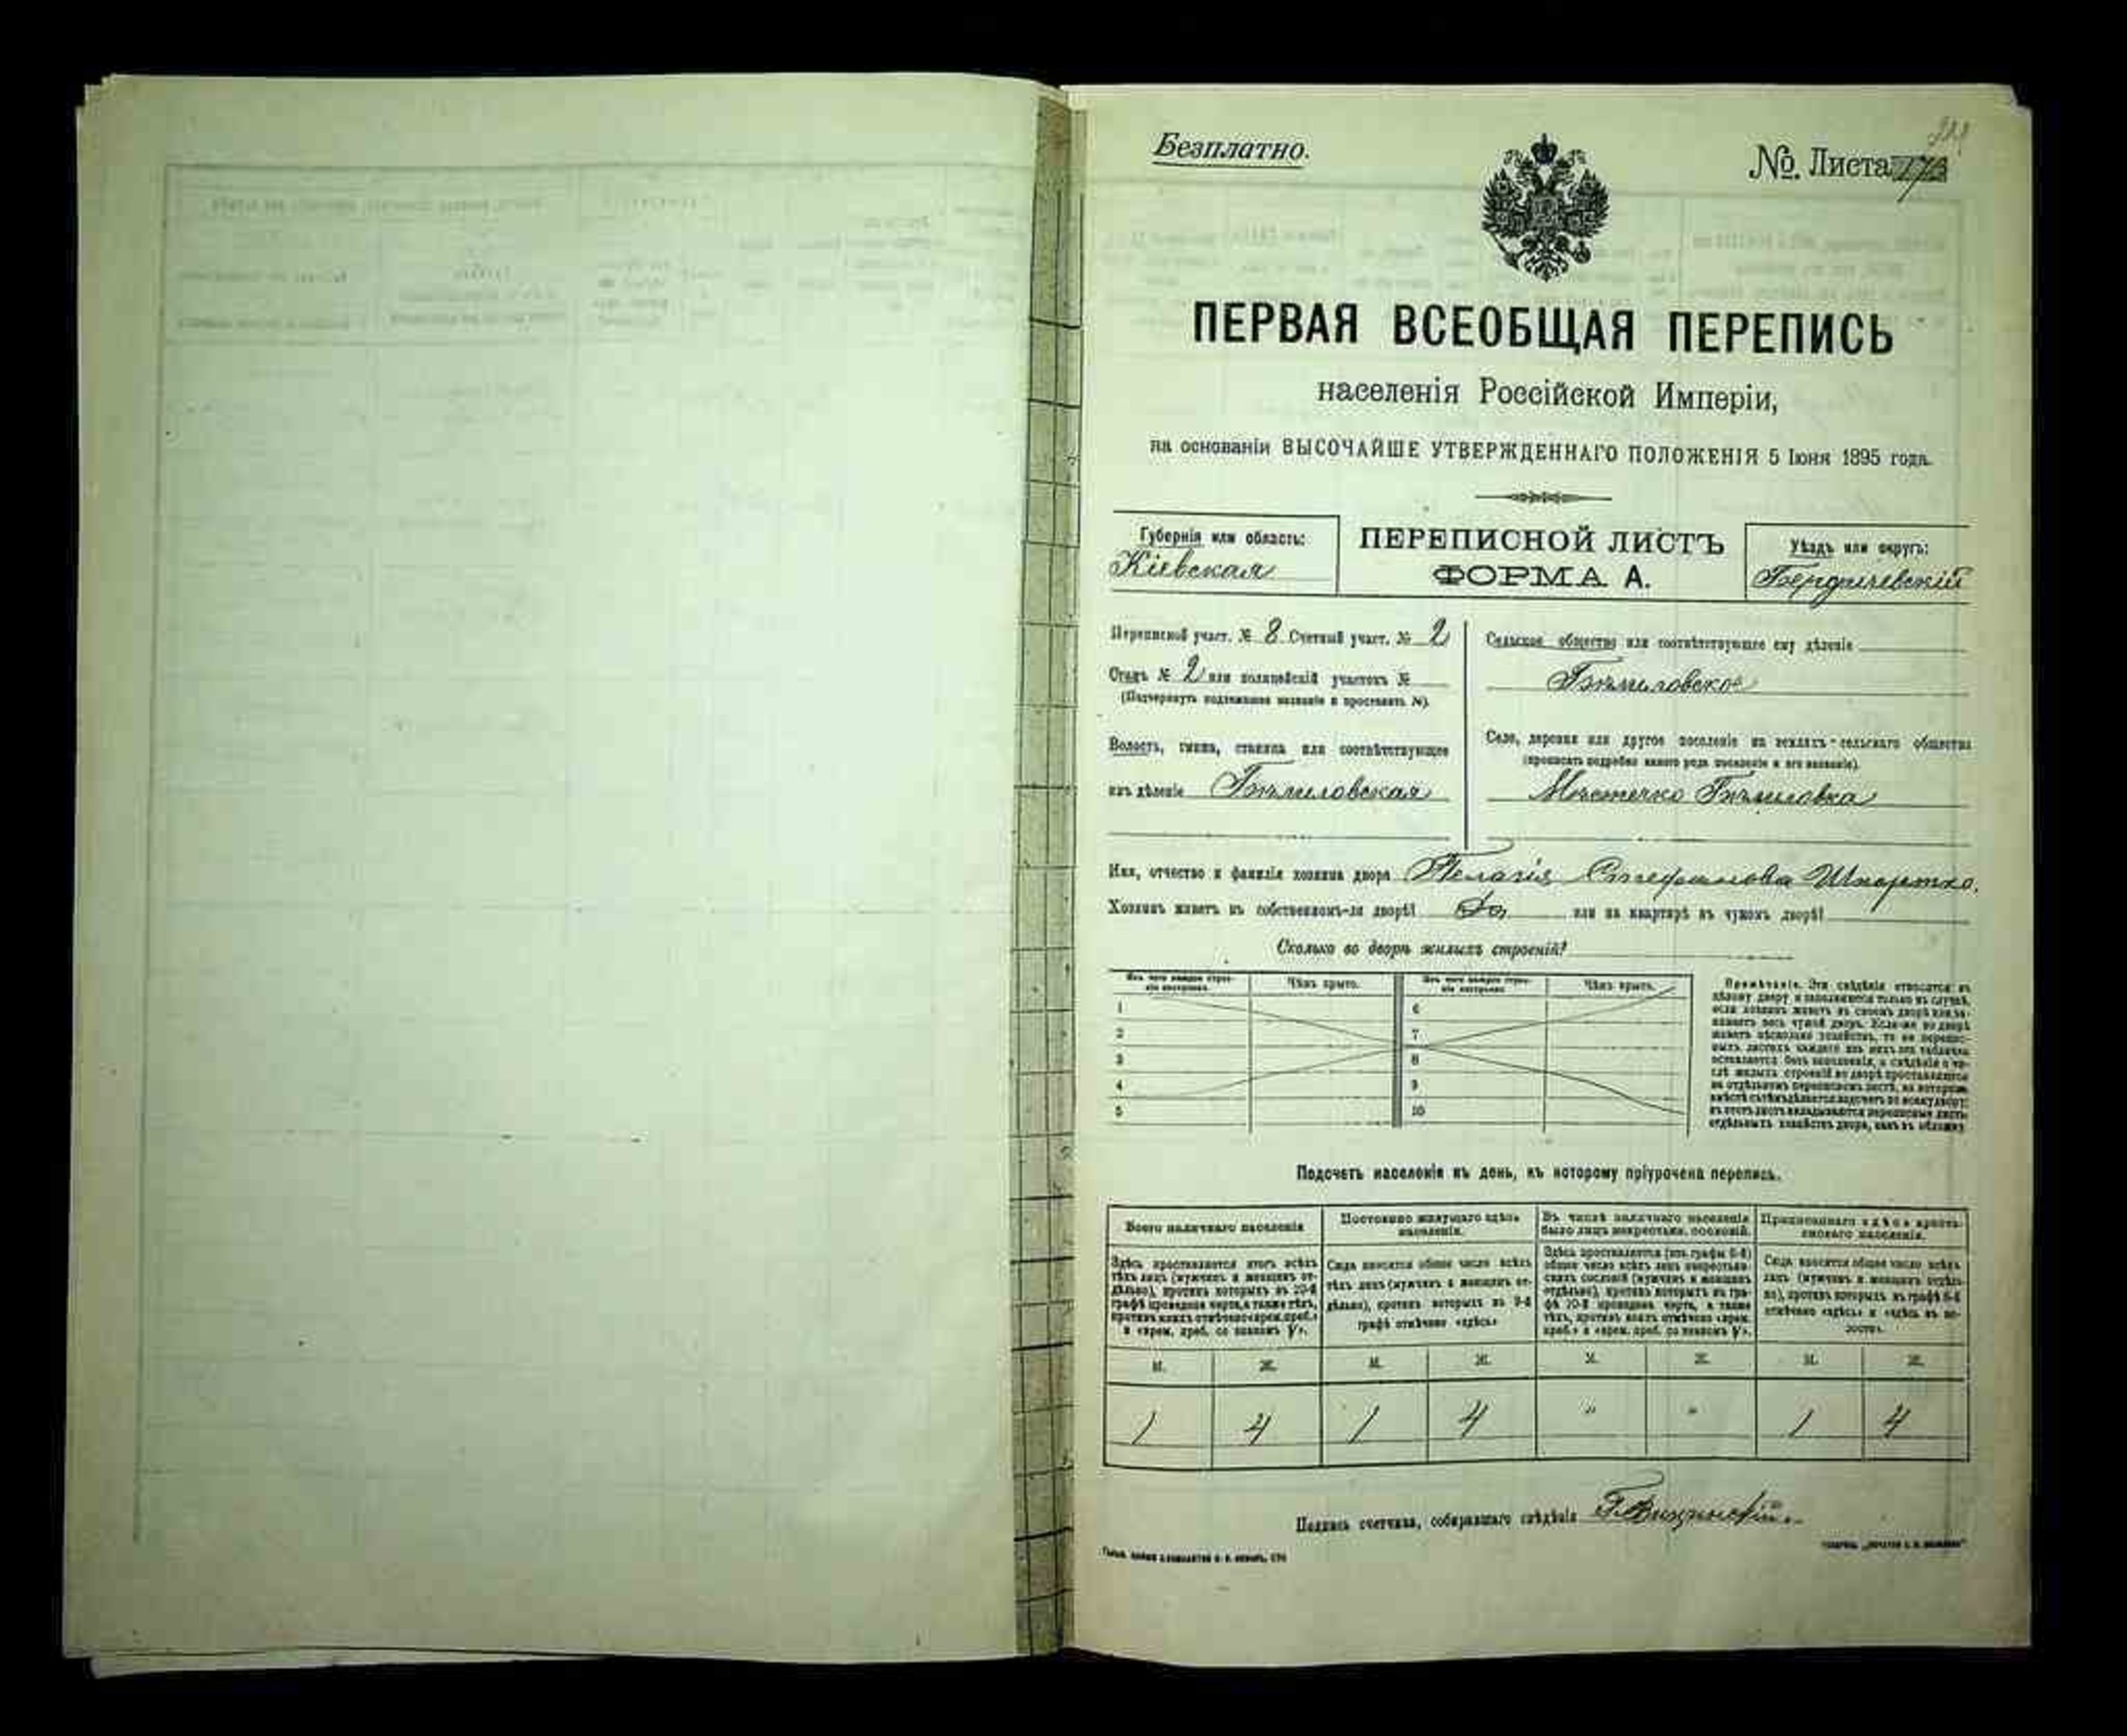 Безплатно.
№ Листа
ПЕРВАЯ ВСЕОБЩАЯ ПЕРЕПИСЬ
населенія Россійской Имперіи,
на основаніи ВЫСОЧАЙШЕ УТВЕРЖДЕННАГО ПОЛОЖЕНІЯ 5 Іюня 1895 года.
Губернія или область:
Кіевская
ПЕРЕПИСНОЙ ЛИСТЪ
ФОРМА А.
Уѣздъ или округъ:
Бердичевскій
Переписной участ. № 8 Счетный участ. № 2
Станъ № 2 или полицейскій участокъ №
(Подчеркнуть подлежащее названіе и проставить №).
Волость, гмина, станица или соотвѣтствующее
имъ дѣленіе Бѣлиловская
Сельское общество или соотвѣтствующее ему дѣленіе
Бѣлиловское
Село, деревня или другое поселеніе на земляхъ сельскаго общества
(прописать подробно какого рода поселеніе и его названіе).
Мѣстечко Бѣлиловка
Имя, отчество и фамилія хозяина двора Пелагія Стефанова Шпортко.
Хозяинъ живетъ въ собственномъ-ли дворѣ? Да или на квартирѣ въ чужомъ дворѣ?
Сколько во дворѣ жилыхъ строеній?
Изъ чего каждое строе-
ніе построено.
Чѣмъ крыто.
Изъ чего каждое строе-
ніе построено.
Чѣмъ крыто.
1 6
2 7
3 8
4 9
5 10
Примѣчаніе. Эти свѣдѣнія относятся къ
цѣлому двору и заполняются только въ случаѣ,
если хозяинъ живетъ въ своемъ дворѣ или за-
нимаетъ весь чужой дворъ. Если-же во дворѣ
живетъ нѣсколько хозяйствъ, то на перепис-
ныхъ листахъ каждаго изъ нихъ эта табличка
оставляется безъ заполненія, а свѣдѣнія о чи-
слѣ жилыхъ строеній во дворѣ проставляются
на отдѣльномъ переписномъ листѣ, на которомъ
вмѣстѣ съ тѣмъ дѣлается подсчетъ по всему двору;
въ этотъ листъ вкладываются переписные листы
отдѣльныхъ хозяйствъ двора, какъ въ обложку
Подсчетъ населенія въ день, къ которому пріурочена перепись.
Всего наличнаго населенія
Здѣсь проставляется итогъ всѣхъ
тѣхъ лицъ (мужчинъ и женщинъ от-
дѣльно), противъ которыхъ въ 10-й
графѣ проведена черта, а также тѣхъ,
противъ коихъ отмѣчено «врем. преб.»
и «врем. преб. со знакомъ V».
Постоянно живущаго здѣсь
населенія.
Сюда вносится общее число всѣхъ
тѣхъ лицъ (мужчинъ и женщинъ от-
дѣльно), противъ которыхъ въ 9-й
графѣ отмѣчено «здѣсь»
Въ числѣ наличнаго населенія
было лицъ некрестьян. сословій.
Здѣсь проставляется (изъ графы 6-й)
общее число всѣхъ лицъ некрестьян-
скихъ сословій (мужчинъ и женщинъ
отдѣльно), противъ которыхъ въ гра-
фѣ 10-й проведена черта, а также
тѣхъ, противъ коихъ отмѣчено «врем.
преб.» и «врем. преб. со знакомъ V».
Приписаннаго здѣсь кресть-
янскаго населенія.
Сюда вносится общее число всѣхъ
лицъ (мужчинъ и женщинъ отдѣль-
но), противъ которыхъ въ графѣ 8-й
отмѣчено «здѣсь» и «здѣсь въ во-
лости».
М. Ж. М. Ж. М. Ж. М. Ж.
1 4 1 4 " " 1 4
Подпись счетчика, собиравшаго свѣдѣнія